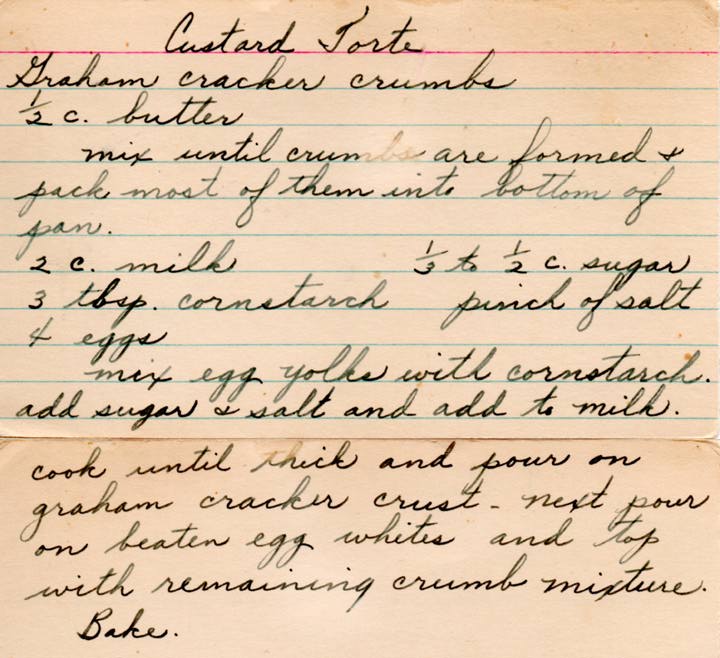 Custard Torte
Graham cracker crumbs
1/2 c. butter
mix until crumbs are formed &
pack most of them into bottom of
pan.
2 c. milk 1/3 to 1/2 c. sugar
3 tbsp. cornstarch pinch of salt
4 eggs
mix egg yolks with cornstarch.
add sugar & salt and add to milk.
cook until thick and pour on
graham cracker crust - next pour
on beaten egg whites and top
with remaining crumb mixture.
Bake.